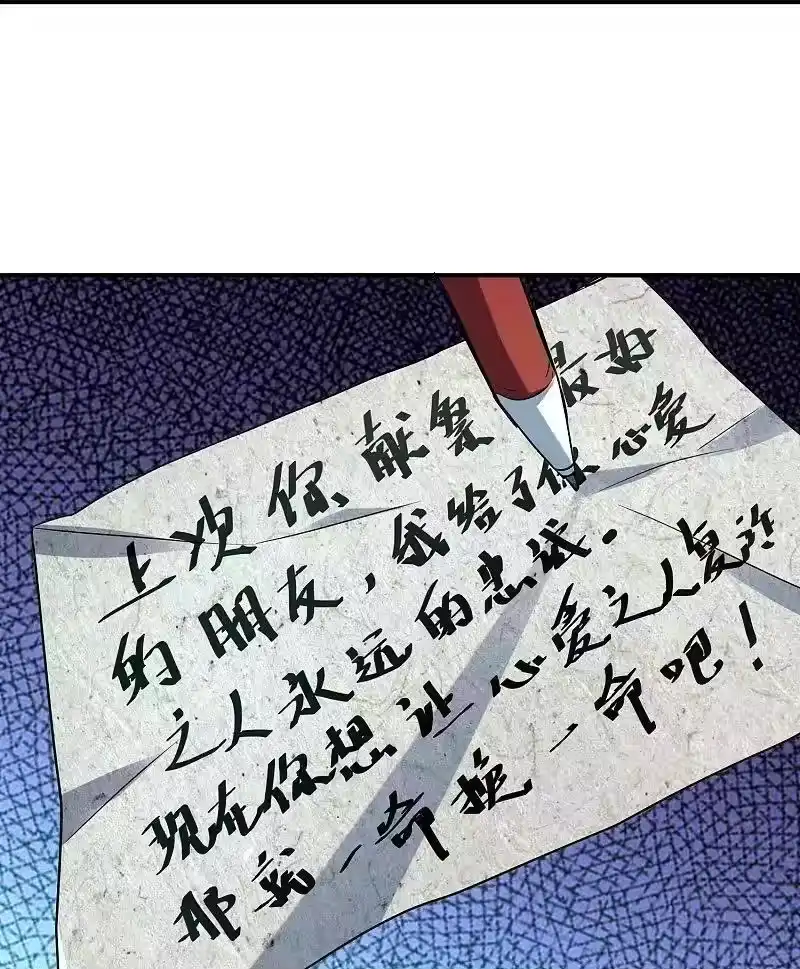 上次你献祭最好
的朋友，我给了你心爱
之人永远的忠诚。
现在你想让心爱之人复活
那就一命换一命吧！